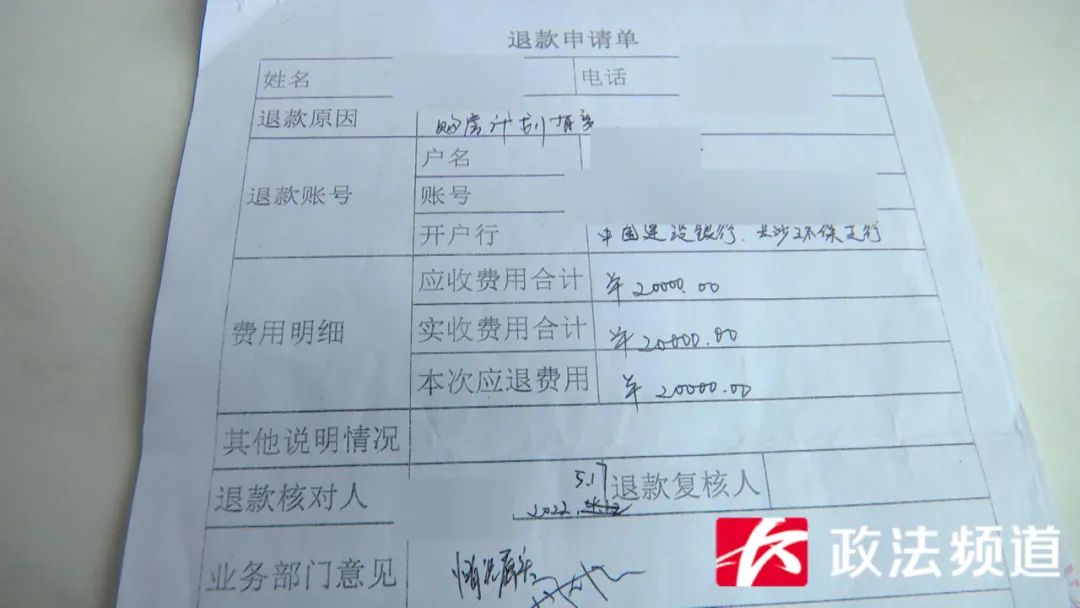 退款申请单
姓名 电话
退款原因 购房计划有变
退款账号 户名
账号
开户行 中国建设银行.长沙环保支行
费用明细 应收费用合计 ¥20000.00
实收费用合计 ¥20000.00
本次应退费用 ¥20000.00
其他说明情况
退款核对人 5.17 退款复核人
2022.
业务部门意见 情况属实
政法频道